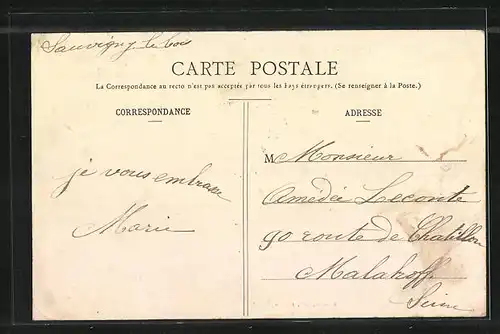 Sauvigny le bois
CARTE POSTALE
La Correspondance au recto n'est pas acceptée par tous les pays étrangers. (Se renseigner à la Poste.)
CORRESPONDANCE
je vous embrasse
Marie
ADRESSE
M Monsieur
Amédée Leconte
90 route de Chatillon
Malakoff
Seine